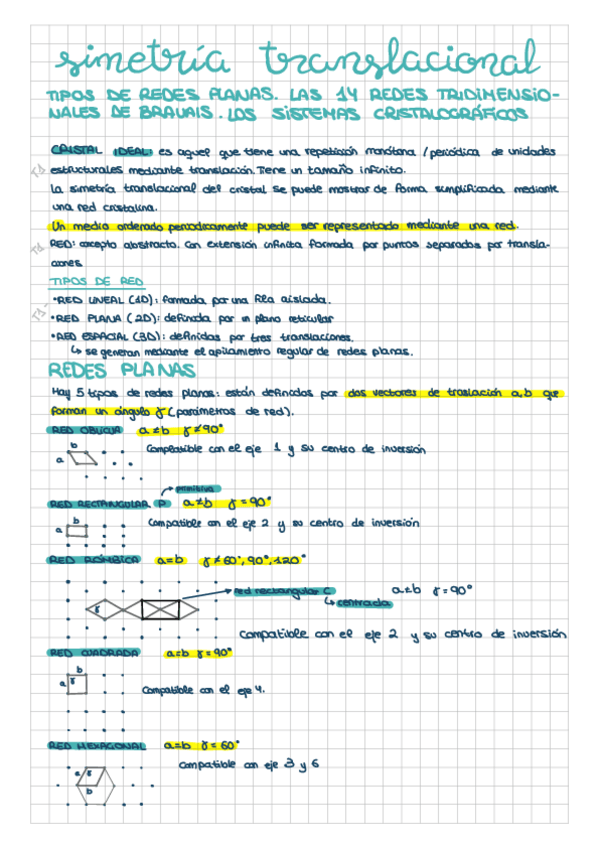 simetría translacional
TIPOS DE REDES PLANAS. LAS 14 REDES TRIDIMENSIO-
NALES DE BRAVAIS. LOS SISTEMAS CRISTALOGRÁFICOS
CRISTAL IDEAL: es aquel que tiene una repetición monótona / periódica de unidades
estructurales mediante translación. Tiene un tamaño infinito.
La simetría translacional del cristal se puede mostrar de forma simplificada mediante
una red cristalina.
Un medio ordenado periódicamente puede ser representado mediante una red.
RED: concepto abstracto. Con extensión infinita formada por puntos separados por transla-
ciones
TIPOS DE RED
• RED LINEAL (1D): formada por una fila aislada.
• RED PLANA (2D): definida por un plano reticular
• RED ESPACIAL (3D): definidas por tres translaciones.
↳ se generan mediante el apilamiento regular de redes planas.
REDES PLANAS
Hay 5 tipos de redes planas: están definidos por dos vectores de traslación a,b que
forman un ángulo γ (parámetros de red).
RED OBLICUA a≠b γ≠90°
b
a
Compatible con el eje 1 y su centro de inversión
→ primitiva
RED RECTANGULAR P a≠b γ=90°
b
a
Compatible con el eje 2 y su centro de inversión
RED RÓMBICA a=b γ≠60°, 90°, 120°
γ
→ red rectangular C a≠b γ=90°
↳ centrada
Compatible con el eje 2 y su centro de inversión
RED CUADRADA a=b γ=90°
b
a γ
Compatible con el eje 4.
RED HEXAGONAL a=b γ=60°
Compatible con eje 3 y 6
a γ
b